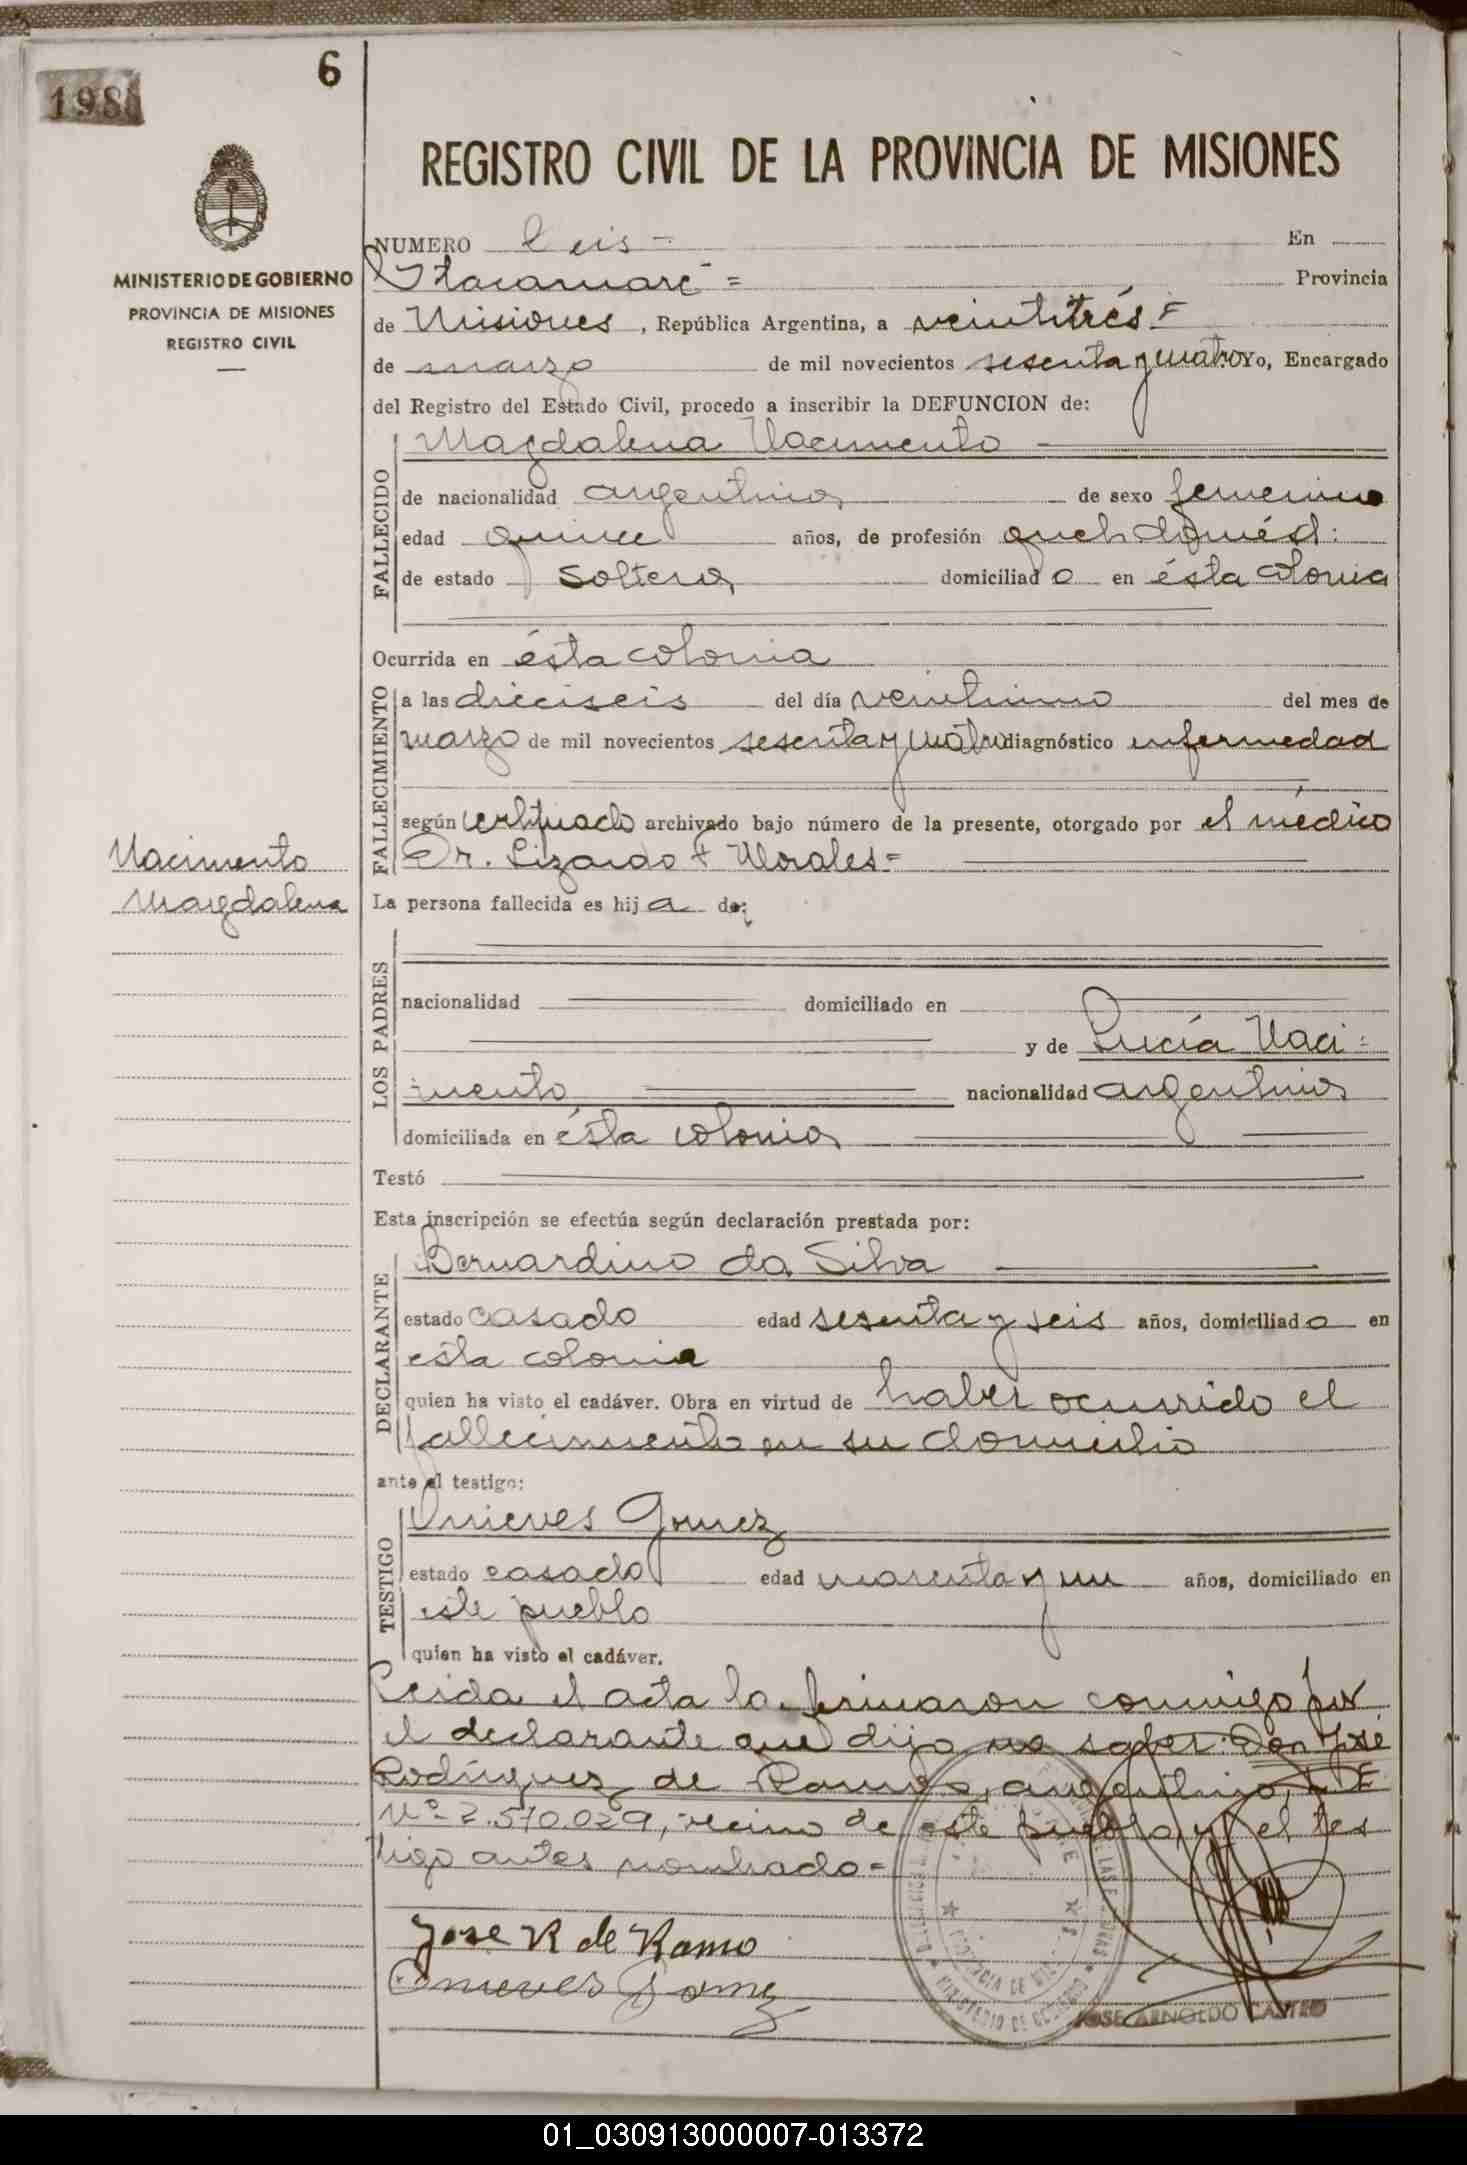 6
198
REGISTRO CIVIL DE LA PROVINCIA DE MISIONES
MINISTERIO DE GOBIERNO
PROVINCIA DE MISIONES
REGISTRO CIVIL
NUMERO Seis = En
Itacaruaré = Provincia
de Misiones, República Argentina, a veintitrés =
de marzo de mil novecientos sesenta y cuatro Yo, Encargado
del Registro del Estado Civil, procedo a inscribir la DEFUNCION de:
FALLECIDO
Magdalena Nacimento
de nacionalidad argentina de sexo femenino
edad quince años, de profesión queh domést:
de estado soltera domiciliad a en ésta colonia
Ocurrida en ésta colonia
FALLECIMIENTO
a las dieciseis del día veintiuno del mes de
marzo de mil novecientos sesenta y cuatro diagnóstico enfermedad
según certificado archivado bajo número de la presente, otorgado por el médico
Dr. Lizardo F Morales =
Nacimento
Magdalena
La persona fallecida es hij a de:
LOS PADRES
nacionalidad domiciliado en
y de Lucía Naci=
mento nacionalidad argentina
domiciliada en ésta colonia
Testó
Esta inscripción se efectúa según declaración prestada por:
DECLARANTE
Bernardino da Silva
estado casado edad sesenta y seis años, domiciliad o en
esta colonia
quien ha visto el cadáver. Obra en virtud de haber ocurrido el
fallecimiento en su domicilio
ante el testigo:
TESTIGO
Onieves Gomez
estado casado edad cuarenta y un años, domiciliado en
este pueblo
quien ha visto el cadáver.
Leida el acta la firmaron conmigo por
el declarante que dijo no saber: Don José
Rodríguez de Ramos, argentino, L E
Nº 2.570.029, vecino de este pueblo, y el tes
tigo antes nombrado =
Jose R de Ramo
Onieves Gomez
JOSE ARNOLDO CASTRO
01_030913000007-013372